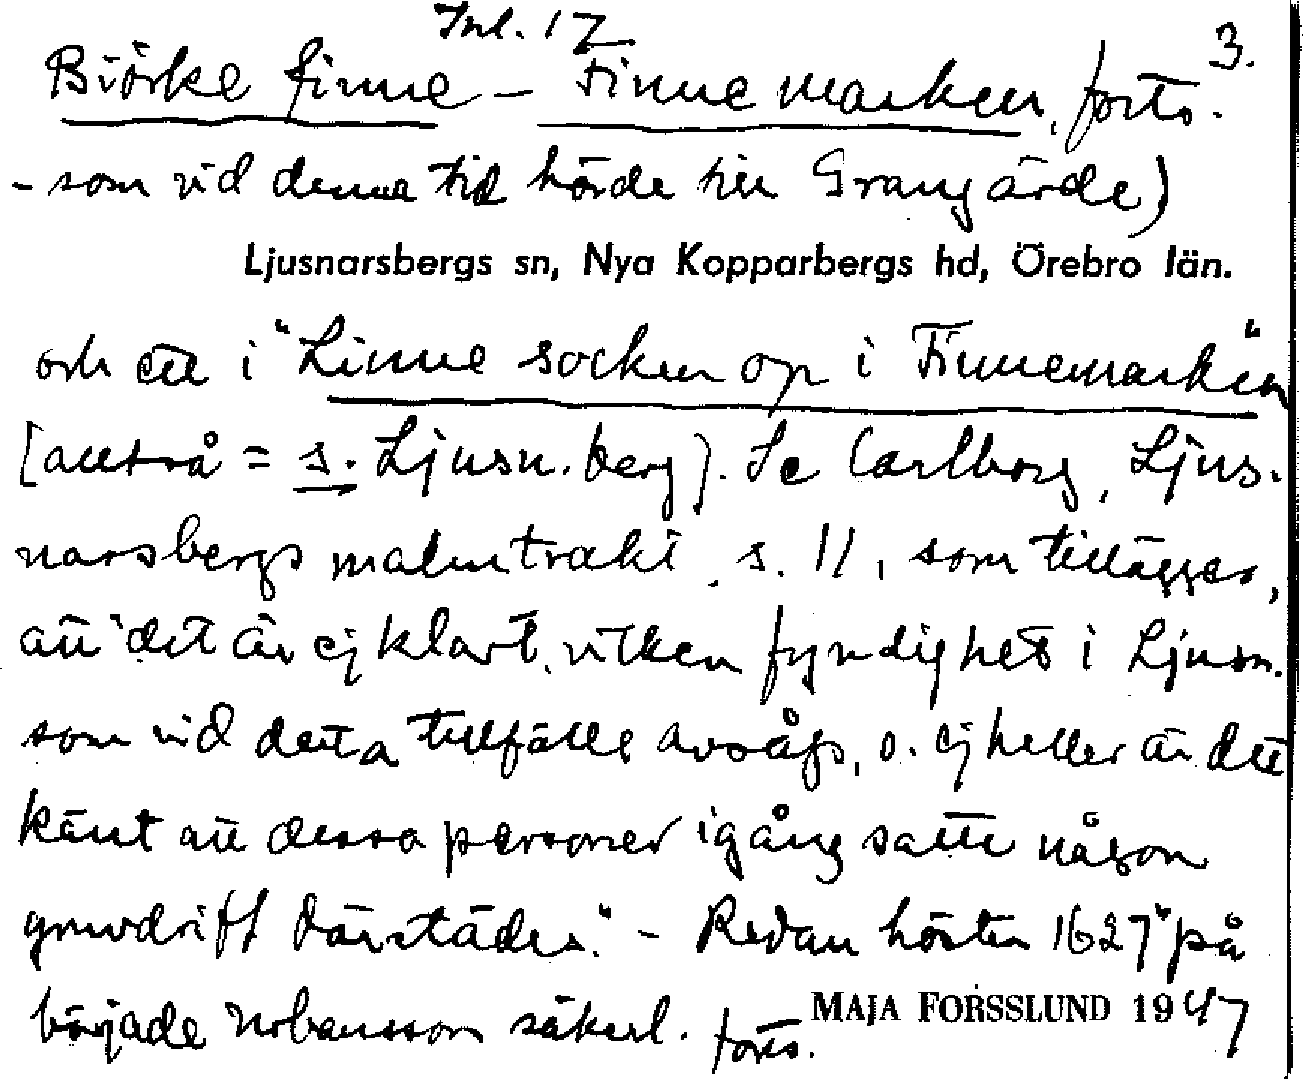 Inl. 17
3.
Biörke finne - Finnemarken, forts.
- som vid denna tid hörde till Grangärde)
Ljusnarsbergs sn, Nya Kopparbergs hd, Örebro län.
och ett i "Linne socken op i Finnemarken"
[alltså = s. Ljusn.berg]. Se Carlborg, Ljus-
narsbergs malmtrakt, s. 11, som tillägger,
att "det är ej klart, vilken fyndighet i Ljusn.
som vid detta tillfälle avsågs, o. ej heller är det
känt att dessa personer igångsatte någon
gruvdrift därstädes." - Redan hösten 1627 "på
började sökerl. forts.
MAJA FORSSLUND 1947